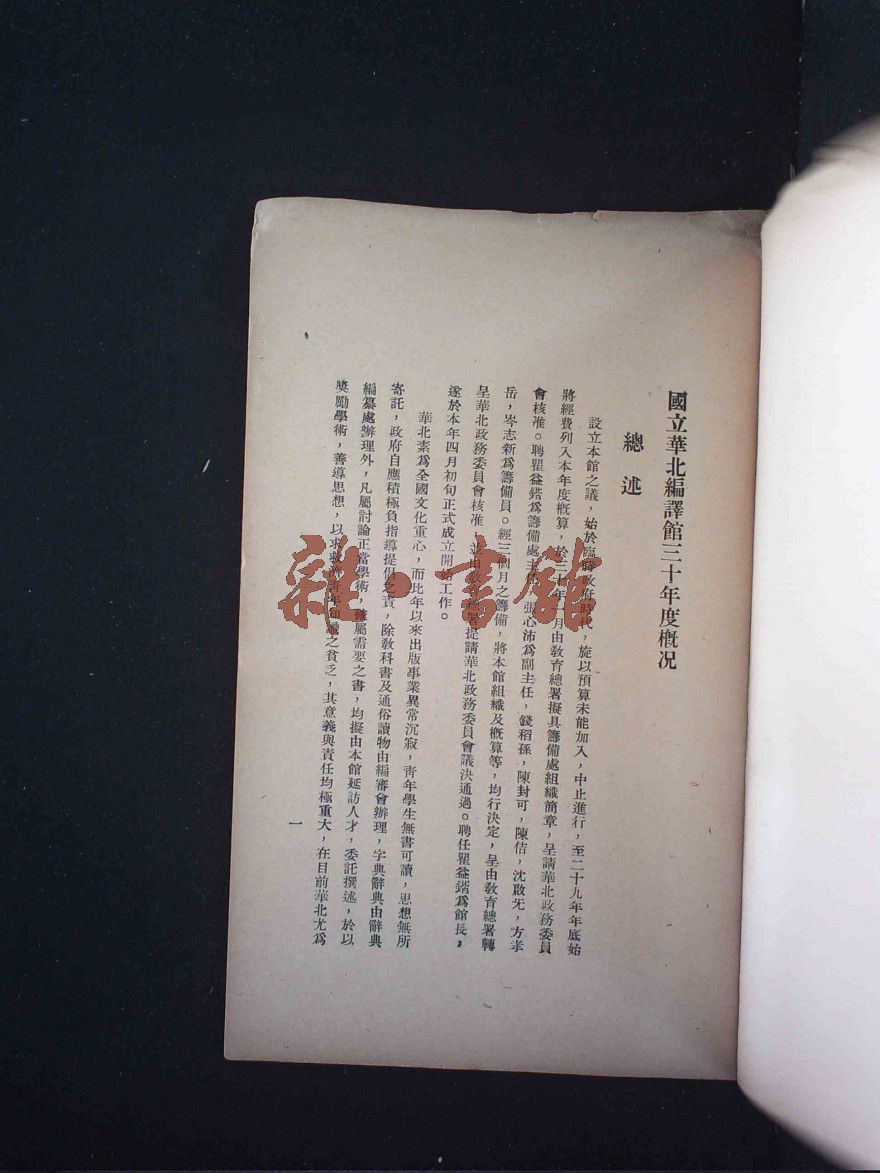 國立華北編譯館三十年度概况
總述
設立本館之議，始於臨時政府時代，旋以預算未能加入，中止進行，至二十九年年底始
將經費列入本年度概算，於三十年一月由敎育總署擬具籌備處組織簡章，呈請華北政務委員
會核准。聘瞿益鍇爲籌備處主任，張心沛爲副主任，錢稻孫，陳封可，陳佶，沈啟无，方孝
岳，岑志新爲籌備員。經三個月之籌備，將本館組織及概算等，均行決定，呈由敎育總署轉
呈華北政務委員會核准，並由敎育總署提請華北政務委員會議決通過。聘任瞿益鍇爲館長，
遂於本年四月初旬正式成立開始工作。
華北素爲全國文化重心，而比年以來出版事業異常沉寂，靑年學生無書可讀，思想無所
寄託，政府自應積極負指導提倡之責，除敎科書及通俗讀物由編審會辦理，字典辭典由辭典
編纂處辦理外，凡屬討論正當學術，確屬需要之書，均擬由本館延訪人才，委託撰述，於以
奬勵學術，善導思想，以求救濟靑年知識之貧乏，其意義與責任均極重大，在目前華北尤爲
一
雜·書館